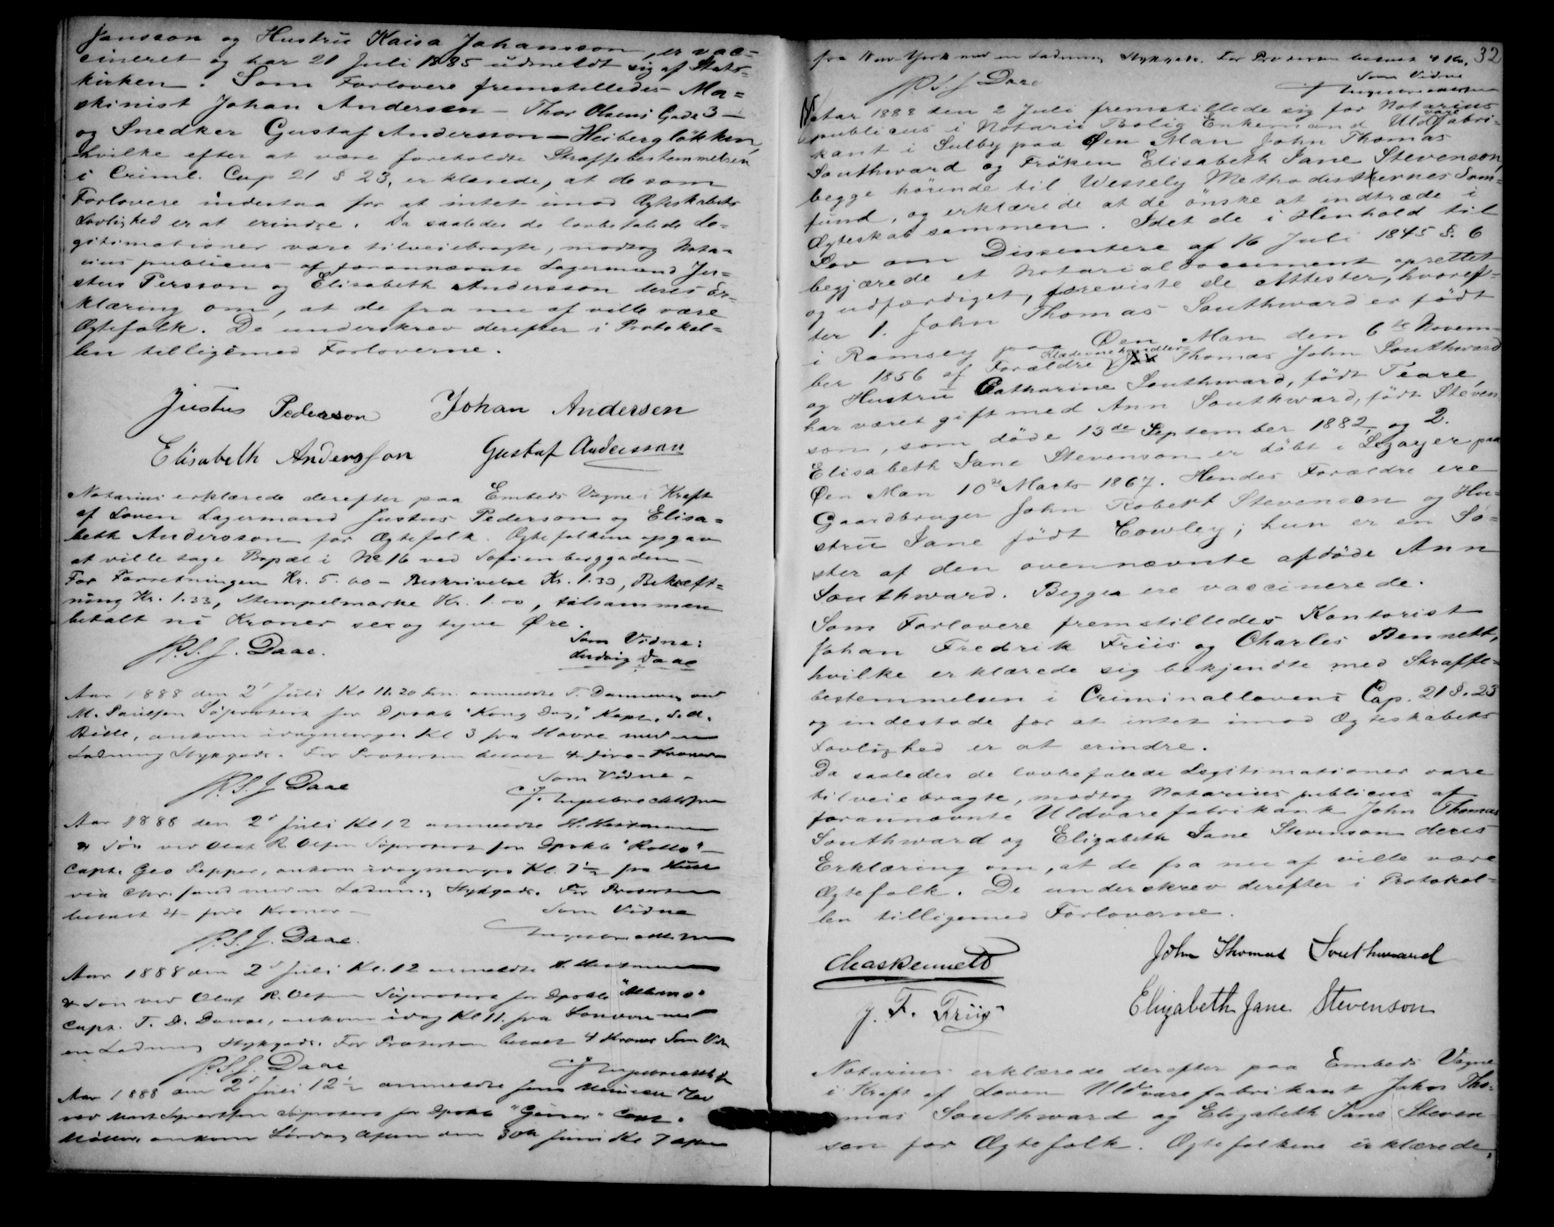 Jansson og Hustru Kaisa Johansson, er vac=
cineret og har 21 Juli 1885 udmeldt sig af Stats=
kirken. Som Forlovere fremstilledes Ma=
skinist Johan Andersen – Thor Olsens Gade 3 –
og Snedker Gustaf Andersson – Heibergløkken,
hvilke efter at være foreholdte Straffebestemmelsen
i Criml. Cap 21 § 23, erklærede, at de som
Forlovere indestaa for at intet imod Ægteskabets
Lovlighed er at erindre. Da saaledes de lovbefalede Le=
gitimationer vare tilveiebragte, modtog Nota=
rius publicus af forannævnte Lagermand Ju=
stus Persson og Elisabeth Andersson deres Er=
klæring om, at de fra nu af ville være
Ægtefolk. De underskrev derefter i Protokol=
len tilligemed Forloverne.
Justus Pederson Johan Andersen
Elisabeth Andersson Gustaf Andersson
Notarius erklærede derefter paa Embeds Vegne i Kraft
af Loven Lagermand Justus Pederson og Elisa=
beth Andersson for Ægtefolk. Ægtefolkene opgav
at ville tage Bopæl i No 16 ved Sofienberggaden –
For Forretningen Kr. 5.00 – Beskrivelse Kr. 1.33, Bekræft=
ning Kr. 1.33, Stempelmærke Kr. 1.00, tilsammen
betalt ni Kroner sex og tyve Øre.
P.S.J. Daae. Som Vidne:
Ludvig Daae
Aar 1888 den 2d Juli Kl 11.20 Fm. anmeldte T. Dannevig ved
M. Paulsen Søprotest for Dpskb "Kong Dag", Kapt.
Bille, ankom idagmorges Kl 3 fra Havre med en
Ladning Stykgods. For Protesten betalt 4 fire Kroner
P.S.J Daae Som Vidne
Aar 1888 den 2d Juli Kl 12 anmeldte H. Heitmann
& Søn ved Olaf R. Olsen Søprotest for Dpskb "Rollo"
Capt. Geo Pepper, ankom idagmorges Kl. 7½ fra Hull
via Chr.sand med en Ladning Stykgods. For Protesten
betalt 4 fire Kroner – Som Vidne
P.S.J. Daae.
Aar 1888 den 2d Juli Kl. 12 anmeldte H. Heitmann
& Søn ved Olaf R. Olsen Søprotest for Dpskb
Capt. T. D. ankom idag Kl 11. fra London med
en Ladning Stykgods. For Protesten betalt 4 Kroner Som Vidne
P.S.J Daae
Aar 1888 den 2d Juli 12½ anmeldte Jens
ved Søprotest for Dpskb Capt.
Møller, ankom Lørdag Aften den 30te Juni Kl 7 aften
32
fra New York med en Ladning Stykgods. For Protesten betalt 4 Kr.
P.S.J Daae Som Vidne
Aar 1888 den 2 Juli fremstillede sig for Notarius
publicus i Notarii Bolig Enkemand Uldvarefabri=
kant i Sulby paa Øen Man John Thomas
Southward og Frøken Elisabeth Jane Stevenson,
begge hørende til Wesseley Methodisternes Sam=
fund, og erklærede at de önske at indtræde i
Ægteskab sammen. Idet de i Henhold til
Lov om Dissentere af 16 Juli 1845 §. 6
begjærede et Notarialdocument oprettet
og udfærdiget, foreviste de Attester, hvoref=
ter 1. John Thomas Southward er født
i Ramsey paa Øen Man den 6te Novem=
ber 1856 af Forældre Klædevarehandler Thomas John Southward
og Hustru Catharine Southward, født Teare,
har været gift med Ann Southward, født Steven
son, som døde 13de September 1882, og 2.
Elisabeth Jane Stevenson er døbt i Lezayre paa
Øen Man 10de Marts 1867. Hendes Forældre ere
Gaardbruger John Robert Stevenson og Hu=
stru Jane født Cowley; hun er en Sø=
ster af den ovennævnte afdøde Ann
Southward. Begge ere vaccinerede.
Som Forlovere fremstilledes Kontorist
Johan Fredrik Friis og Charles Bennett,
hvilke erklærede sig bekjendte med Straffe=
bestemmelsen i Criminallovens Cap. 21 §. 23
og indestode for at intet imod Ægteskabets
Lovlighed er at erindre.
Da saaledes de lovbefalede Legitimationer vare
tilveiebragte, modtog Notarius publicus af
forannævnte Uldvarefabrikant John Thomas
Southward og Elizabeth Jane Stevenson deres
Erklæring om, at de fra nu af ville være
Ægtefolk. De underskrev derefter i Protokol=
len tilligemed Forloverne.
Chas Bennett John Thomas Southward
J. F. Friis Elizabeth Jane Stevenson
Notarius erklærede derefter paa Embeds Vegne
i Kraft af Loven Uldvarefabrikant John Tho=
mas Southward og Elizabeth Jane Steven
son for Ægtefolk. Ægtefolkene erklærede,